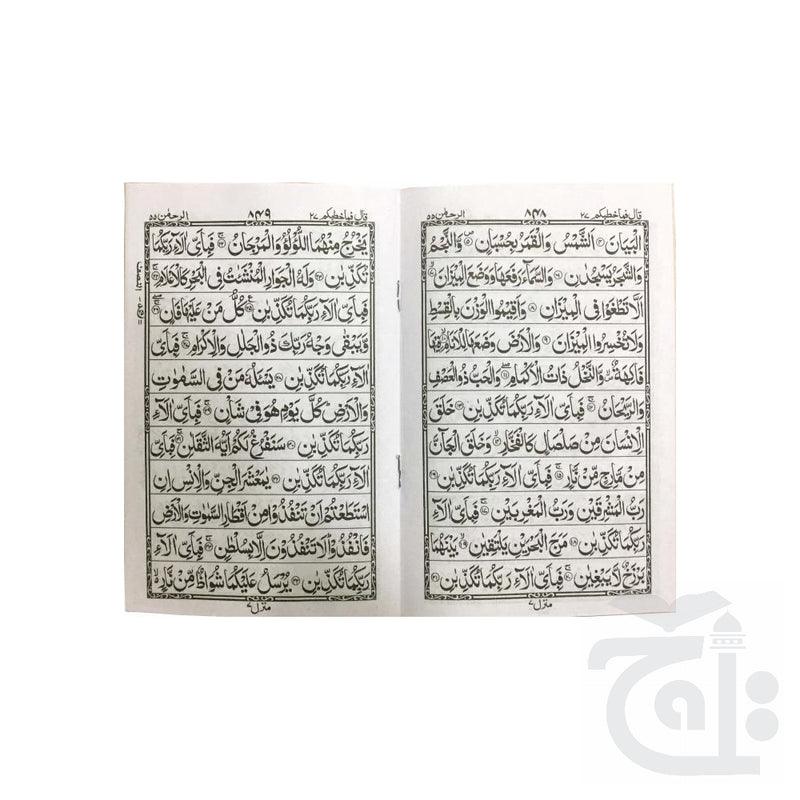 قال فماخطبكم ٢٧
٨٤٨
الرحمٰن ٥٥
الْبَيَانَ ۴ اَلشَّمْسُ وَالْقَمَرُ بِحُسْبَانٍ ۵ وَّالنَّجْمُ
وَالشَّجَرُ يَسْجُدٰنِ ۶ وَالسَّمَآءَ رَفَعَهَا وَوَضَعَ الْمِيْزَانَ ۷
اَلَّا تَطْغَوْا فِى الْمِيْزَانِ ۸ وَاَقِيْمُوا الْوَزْنَ بِالْقِسْطِ
وَلَا تُخْسِرُوا الْمِيْزَانَ ۹ وَالْاَرْضَ وَضَعَهَا لِلْاَنَامِ ۱۰ فِيْهَا
فَاكِهَةٌ وَّالنَّخْلُ ذَاتُ الْاَكْمَامِ ۱۱ وَالْحَبُّ ذُو الْعَصْفِ
وَالرَّيْحَانُ ۱۲ فَبِاَىِّ اٰلَآءِ رَبِّكُمَا تُكَذِّبٰنِ ۱۳ خَلَقَ
الْاِنْسَانَ مِنْ صَلْصَالٍ كَالْفَخَّارِ ۱۴ وَخَلَقَ الْجَآنَّ
مِنْ مَّارِجٍ مِّنْ نَّارٍ ۱۵ فَبِاَىِّ اٰلَآءِ رَبِّكُمَا تُكَذِّبٰنِ ۱۶
رَبُّ الْمَشْرِقَيْنِ وَرَبُّ الْمَغْرِبَيْنِ ۱۷ فَبِاَىِّ اٰلَآءِ
رَبِّكُمَا تُكَذِّبٰنِ ۱۸ مَرَجَ الْبَحْرَيْنِ يَلْتَقِيٰنِ ۱۹ بَيْنَهُمَا
بَرْزَخٌ لَّا يَبْغِيٰنِ ۲۰ فَبِاَىِّ اٰلَآءِ رَبِّكُمَا تُكَذِّبٰنِ ۲۱
منزل ٧
قال فماخطبكم ٢٧
٨٤٩
الرحمٰن ٥٥
يَخْرُجُ مِنْهُمَا اللُّؤْلُؤُ وَالْمَرْجَانُ ۲۲ فَبِاَىِّ اٰلَآءِ رَبِّكُمَا
تُكَذِّبٰنِ ۲۳ وَلَهُ الْجَوَارِ الْمُنْشَئٰتُ فِى الْبَحْرِ كَالْاَعْلَامِ ۲۴
فَبِاَىِّ اٰلَآءِ رَبِّكُمَا تُكَذِّبٰنِ ۲۵ كُلُّ مَنْ عَلَيْهَا فَانٍ ۲۶
وَّيَبْقٰى وَجْهُ رَبِّكَ ذُو الْجَلٰلِ وَالْاِكْرَامِ ۲۷ فَبِاَىِّ
اٰلَآءِ رَبِّكُمَا تُكَذِّبٰنِ ۲۸ يَسْـَٔلُهٗ مَنْ فِى السَّمٰوٰتِ
وَالْاَرْضِ كُلَّ يَوْمٍ هُوَ فِىْ شَاْنٍ ۲۹ فَبِاَىِّ اٰلَآءِ
رَبِّكُمَا تُكَذِّبٰنِ ۳۰ سَنَفْرُغُ لَكُمْ اَيُّهَ الثَّقَلٰنِ ۳۱ فَبِاَىِّ
اٰلَآءِ رَبِّكُمَا تُكَذِّبٰنِ ۳۲ يٰمَعْشَرَ الْجِنِّ وَالْاِنْسِ اِنِ
اسْتَطَعْتُمْ اَنْ تَنْفُذُوْا مِنْ اَقْطَارِ السَّمٰوٰتِ وَالْاَرْضِ
فَانْفُذُوْا لَا تَنْفُذُوْنَ اِلَّا بِسُلْطٰنٍ ۳۳ فَبِاَىِّ اٰلَآءِ
رَبِّكُمَا تُكَذِّبٰنِ ۳۴ يُرْسَلُ عَلَيْكُمَا شُوَاظٌ مِّنْ نَّارٍ ۵
منزل ٧